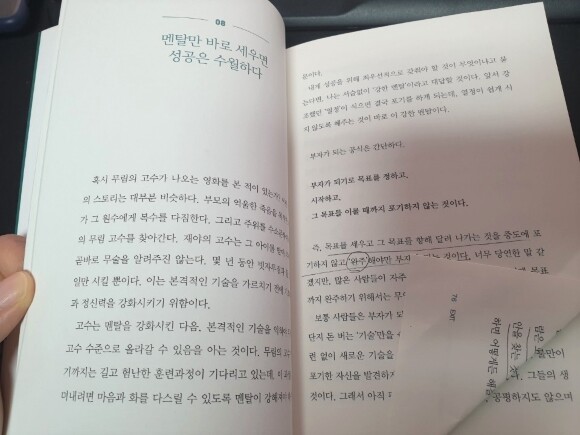 08
멘탈만 바로 세우면
성공은 수월하다
혹시 무림의 고수가 나오는 영화를 본 적이 있는가?
의 스토리는 대부분 비슷하다. 부모의 억울한 죽음을
가 그 원수에게 복수를 다짐한다. 그리고 주위를
의 무림 고수를 찾아간다. 재야의 고수는 그 아이를
곧바로 무술을 알려주진 않는다. 몇 년 동안
일만 시킬 뿐이다. 이는 본격적인 기술을 가르치기 전에
과 정신력을 강화시키기 위함이다.
고수는 멘탈을 강화시킨 다음, 본격적인 기술을 익혀야
고수 수준으로 올라갈 수 있음을 아는 것이다. 무림의 고
기까지는 길고 험난한 훈련과정이 기다리고 있는데, 이
뎌내려면 마음과 화를 다스릴 수 있도록 멘탈이 강해져야
문이다.
내게 성공을 위해 최우선적으로 갖춰야 할 것이 무엇이냐고 묻
는다면, 나는 서슴없이 '강한 멘탈'이라고 대답할 것이다. 앞서 강
조했던 '열정'이 식으면 결국 포기를 하게 되는데, 열정이 쉽게 식
지 않도록 해주는 것이 바로 이 강한 멘탈이다.
부자가 되는 공식은 간단하다.
부자가 되기로 목표를 정하고,
시작하고,
그 목표를 이룰 때까지 포기하지 않는 것이다.
즉, 목표를 세우고 그 목표를 향해 달려 나가는 것을 중도에 포
기하지 않고 '완주'해야만 부자 되는 것이다. 너무 당연한 말 같
겠지만, 많은 사람들이 자주 목표
까지 완주하기 위해서는 무
보통 사람들은 부자가 되
단지 돈 버는 '기술'만을
련 없이 새로운 기술을
포기한 자신을 발견하
것이다. 그래서 아직
불만이
그들의 생
공평하지도 않으며
76 EXIT
많은
안을 찾는 것
하면 어떻게든 해